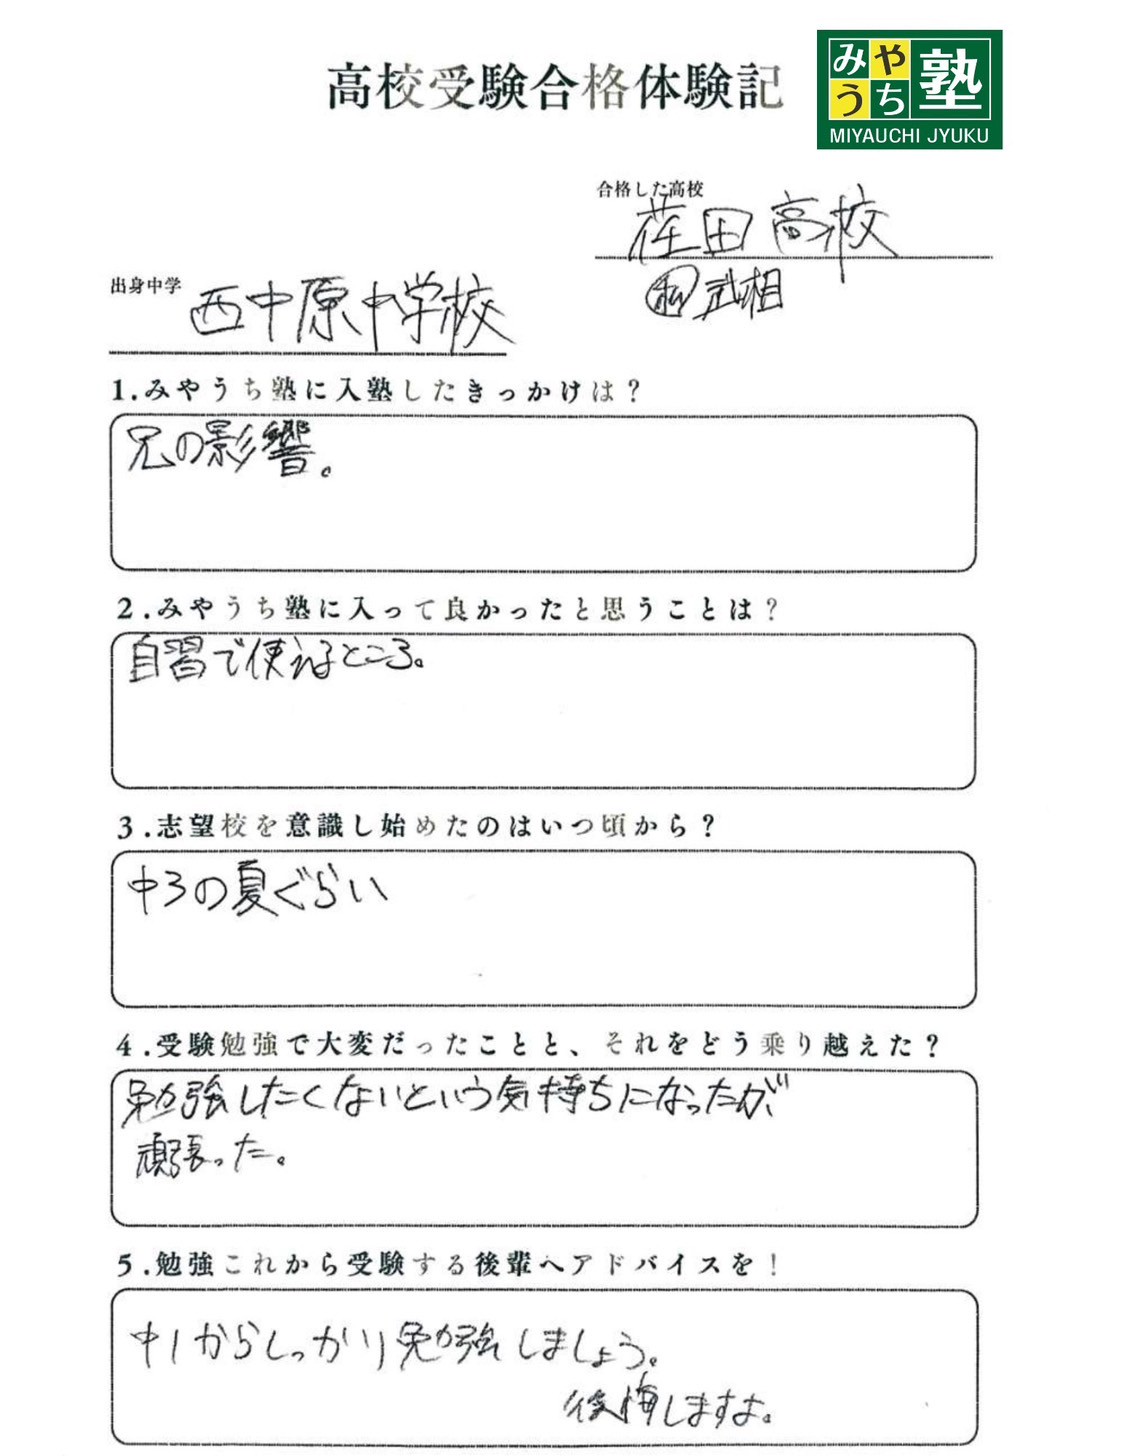 高校受験合格体験記
みやうち塾
MIYAUCHI JYUKU
合格した高校
荏田高校
私 武相
出身中学
西中原中学校
1.みやうち塾に入塾したきっかけは？
兄の影響。
2.みやうち塾に入って良かったと思うことは？
自習で使えるところ。
3.志望校を意識し始めたのはいつ頃から？
中3の夏ぐらい
4.受験勉強で大変だったことと、それをどう乗り越えた？
勉強したくないという気持ちになったが、
頑張った。
5.勉強これから受験する後輩へアドバイスを！
中1からしっかり勉強しましょう。
後悔しますよ。